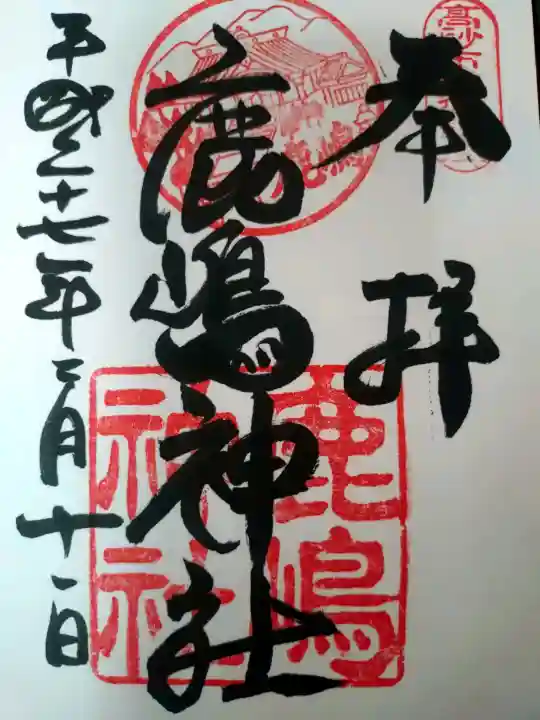 奉拝
鹿嶋神社
平成二十七年二月十一日
鹿嶋
神社